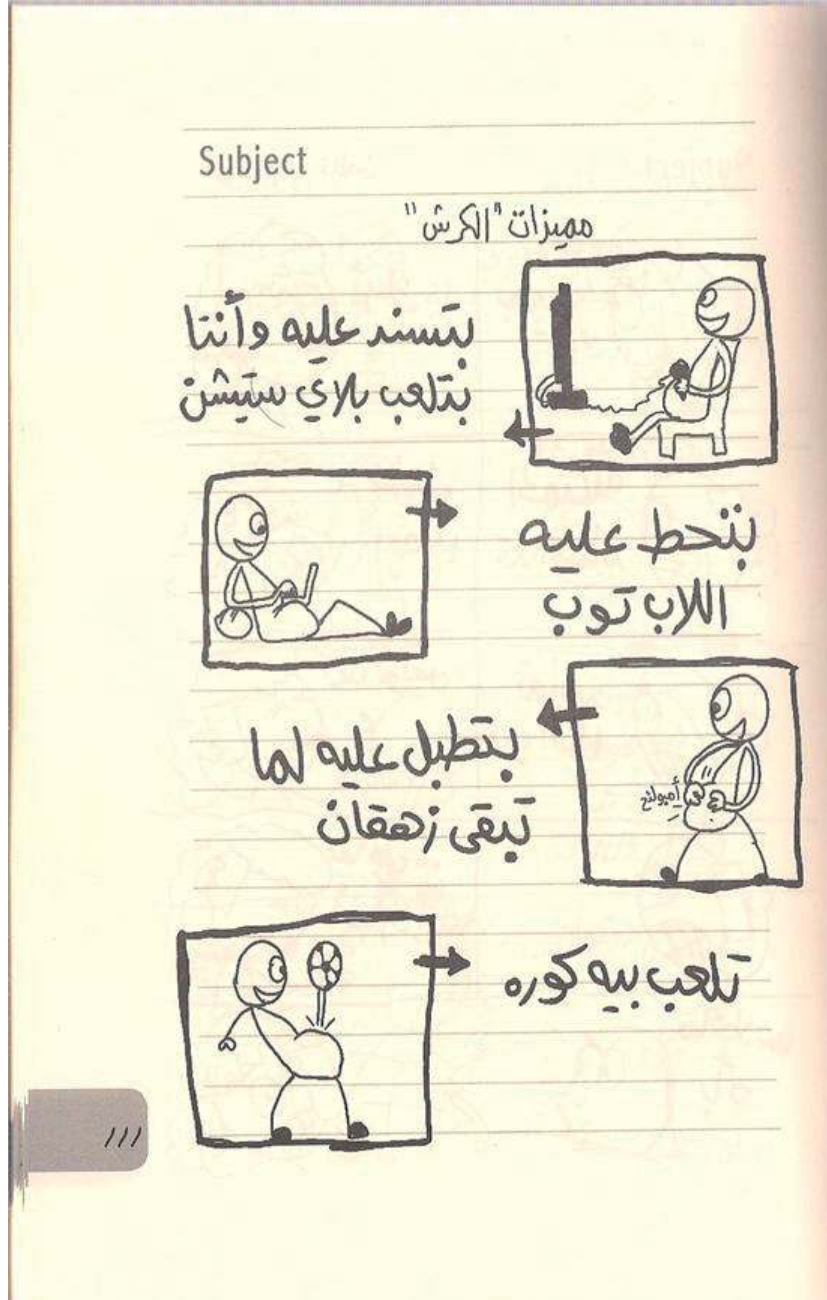 Subject
مميزات "الكرش"
بتسند عليه وأنتا
بتلعب بلاي ستيشن
بتحط عليه
اللاب توب
بتطبل عليه لما
تبقى زهقان
أمبولنح
تلعب بيه كوره
111